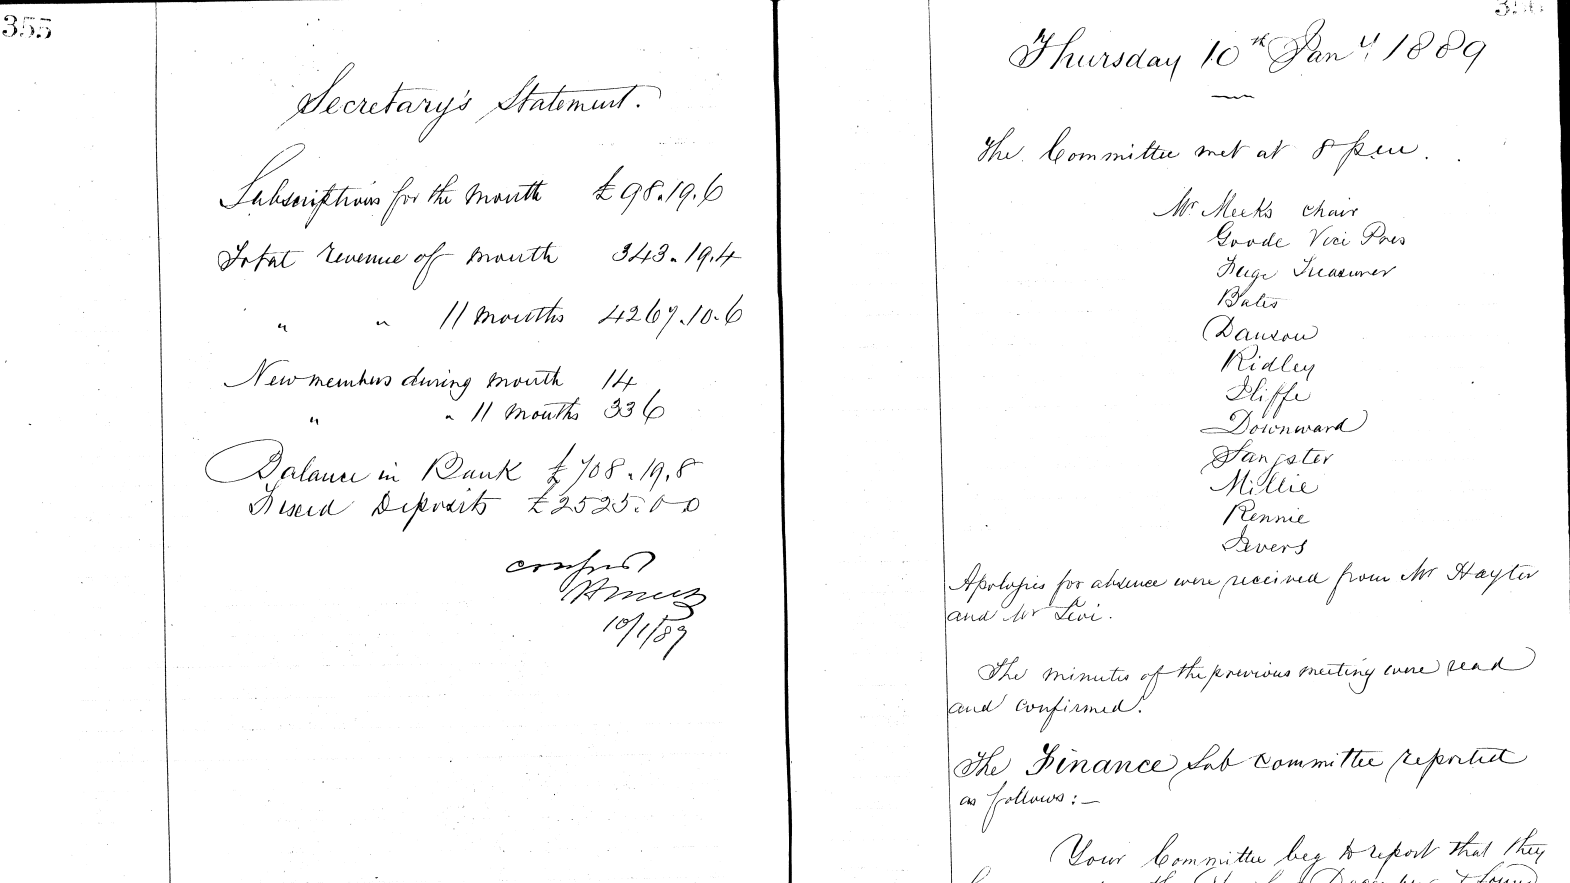 355
Secretary's Statement.
Subscriptions for the month £98.19.6
Total revenue of month 343.19.4
" " 11 months 4267.10.6
New members during month 14
" " 11 months 336
Balance in Bank £708.19.8
Fixed Deposits £2525.0.0
10/1/89
Thursday 10th Jany. 1889
The Committee met at 8 p.m.
Mr Meeks chair
Goode Vice Pres
Treasurer
Bates
Danson
Ridley
Iliffe
Downward
Sangster
Millie
Rennie
Ievers
Apologies for absence were received from Mr Hayter
and Mr Levi.
The minutes of the previous meeting were read
and confirmed.
The Finance Sub Committee reported
as follows:—
Your Committee beg to report that they